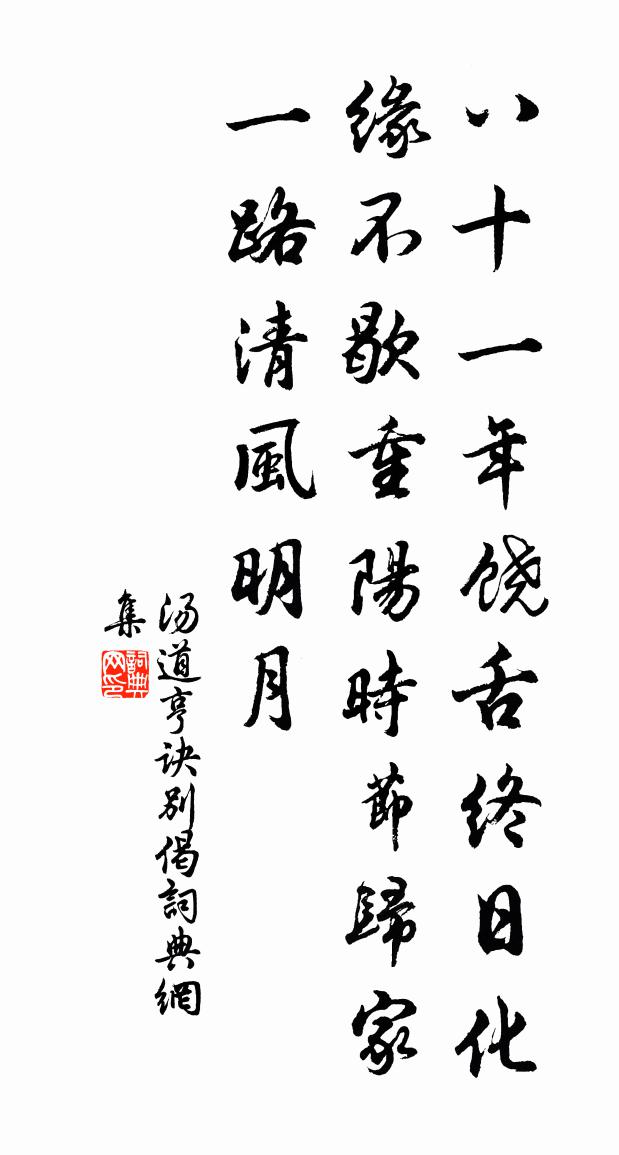 八十一年饶舌终日化
缘不歇重陽時節歸家
一路清風明月
汤道亨诀别偈詞典網
集
詞典网印